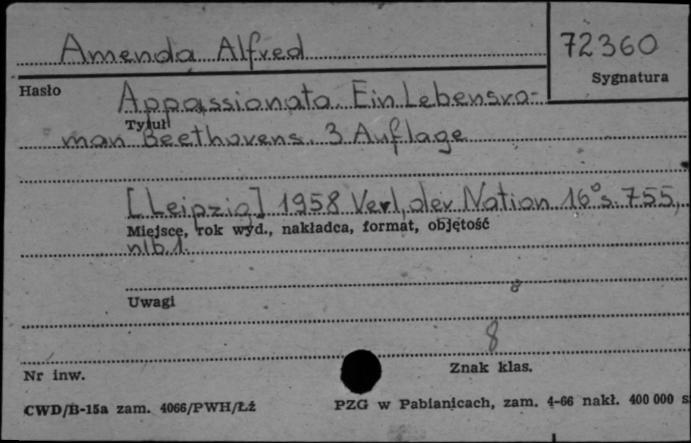 Amenda Alfred
72360
Sygnatura
Hasło
Appassionata. Ein Lebensro-
Tytuł
man Beethovens. 3 Auflage
[Leipzig] 1958 Verl. der Nation 16° s. 755,
Miejsce, rok wyd., nakładca, format, objętość
nlb 1.
Uwagi
8
Nr inw.
Znak klas.
CWD/B-15a zam. 4066/PWH/Łź
PZG w Pabianicach, zam. 4-66 nakł. 400 000 s